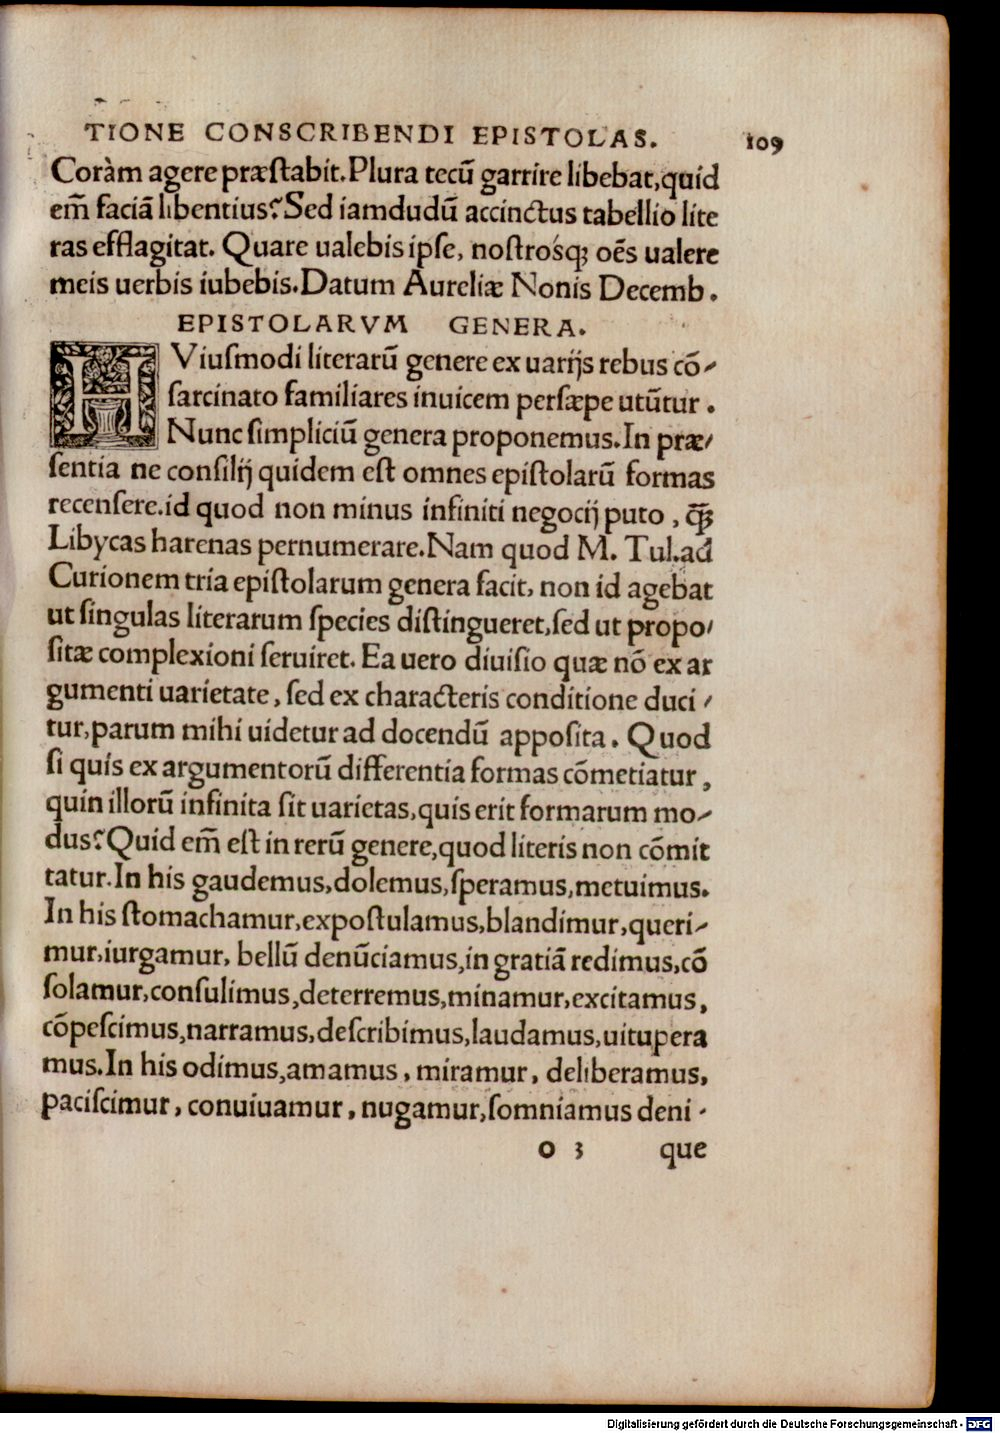 TIONE CONSCRIBENDI EPISTOLAS. 109
Coràm agere præſtabit. Plura tecũ garrire libebat, quid
em̃ faciã libentius? Sed iamdudũ accinctus tabellio lite
ras efflagitat. Quare ualebis ipſe, noſtrosq́; oẽs ualere
meis uerbis iubebis. Datum Aureliæ Nonis Decemb.
EPISTOLARVM GENERA.
HViuſmodi literarũ genere ex uarijs rebus cõ-
ſarcinato familiares inuicem perſæpe utũtur.
Nunc ſimpliciũ genera proponemus. In præ/
ſentia ne conſilij quidem eſt omnes epiſtolarũ formas
recenſere. id quod non minus infiniti negocij puto, q̃ꝫ
Libycas harenas pernumerare. Nam quod M. Tul. ad
Curionem tria epiſtolarum genera facit, non id agebat
ut ſingulas literarum ſpecies diſtingueret, ſed ut propo/
ſitæ complexioni ſeruiret. Ea uero diuiſio quæ nõ ex ar
gumenti uarietate, ſed ex characteris conditione duci /
tur, parum mihi uidetur ad docendũ appoſita. Quod
ſi quis ex argumentorũ differentia formas cõmetiatur,
quin illorũ infinita ſit uarietas, quis erit formarum mo-
dus? Quid em̃ eſt in rerũ genere, quod literis non cõmit
tatur. In his gaudemus, dolemus, ſperamus, metuimus.
In his ſtomachamur, expoſtulamus, blandimur, queri-
mur, iurgamur, bellũ denũciamus, in gratiã redimus, cõ
ſolamur, conſulimus, deterremus, minamur, excitamus,
cõpeſcimus, narramus, deſcribimus, laudamus, uitupera
mus. In his odimus, amamus, miramur, deliberamus,
paciſcimur, conuiuamur, nugamur, ſomniamus deni-
o 3 que
Digitalisierung gefördert durch die Deutsche Forschungsgemeinschaft - DFG